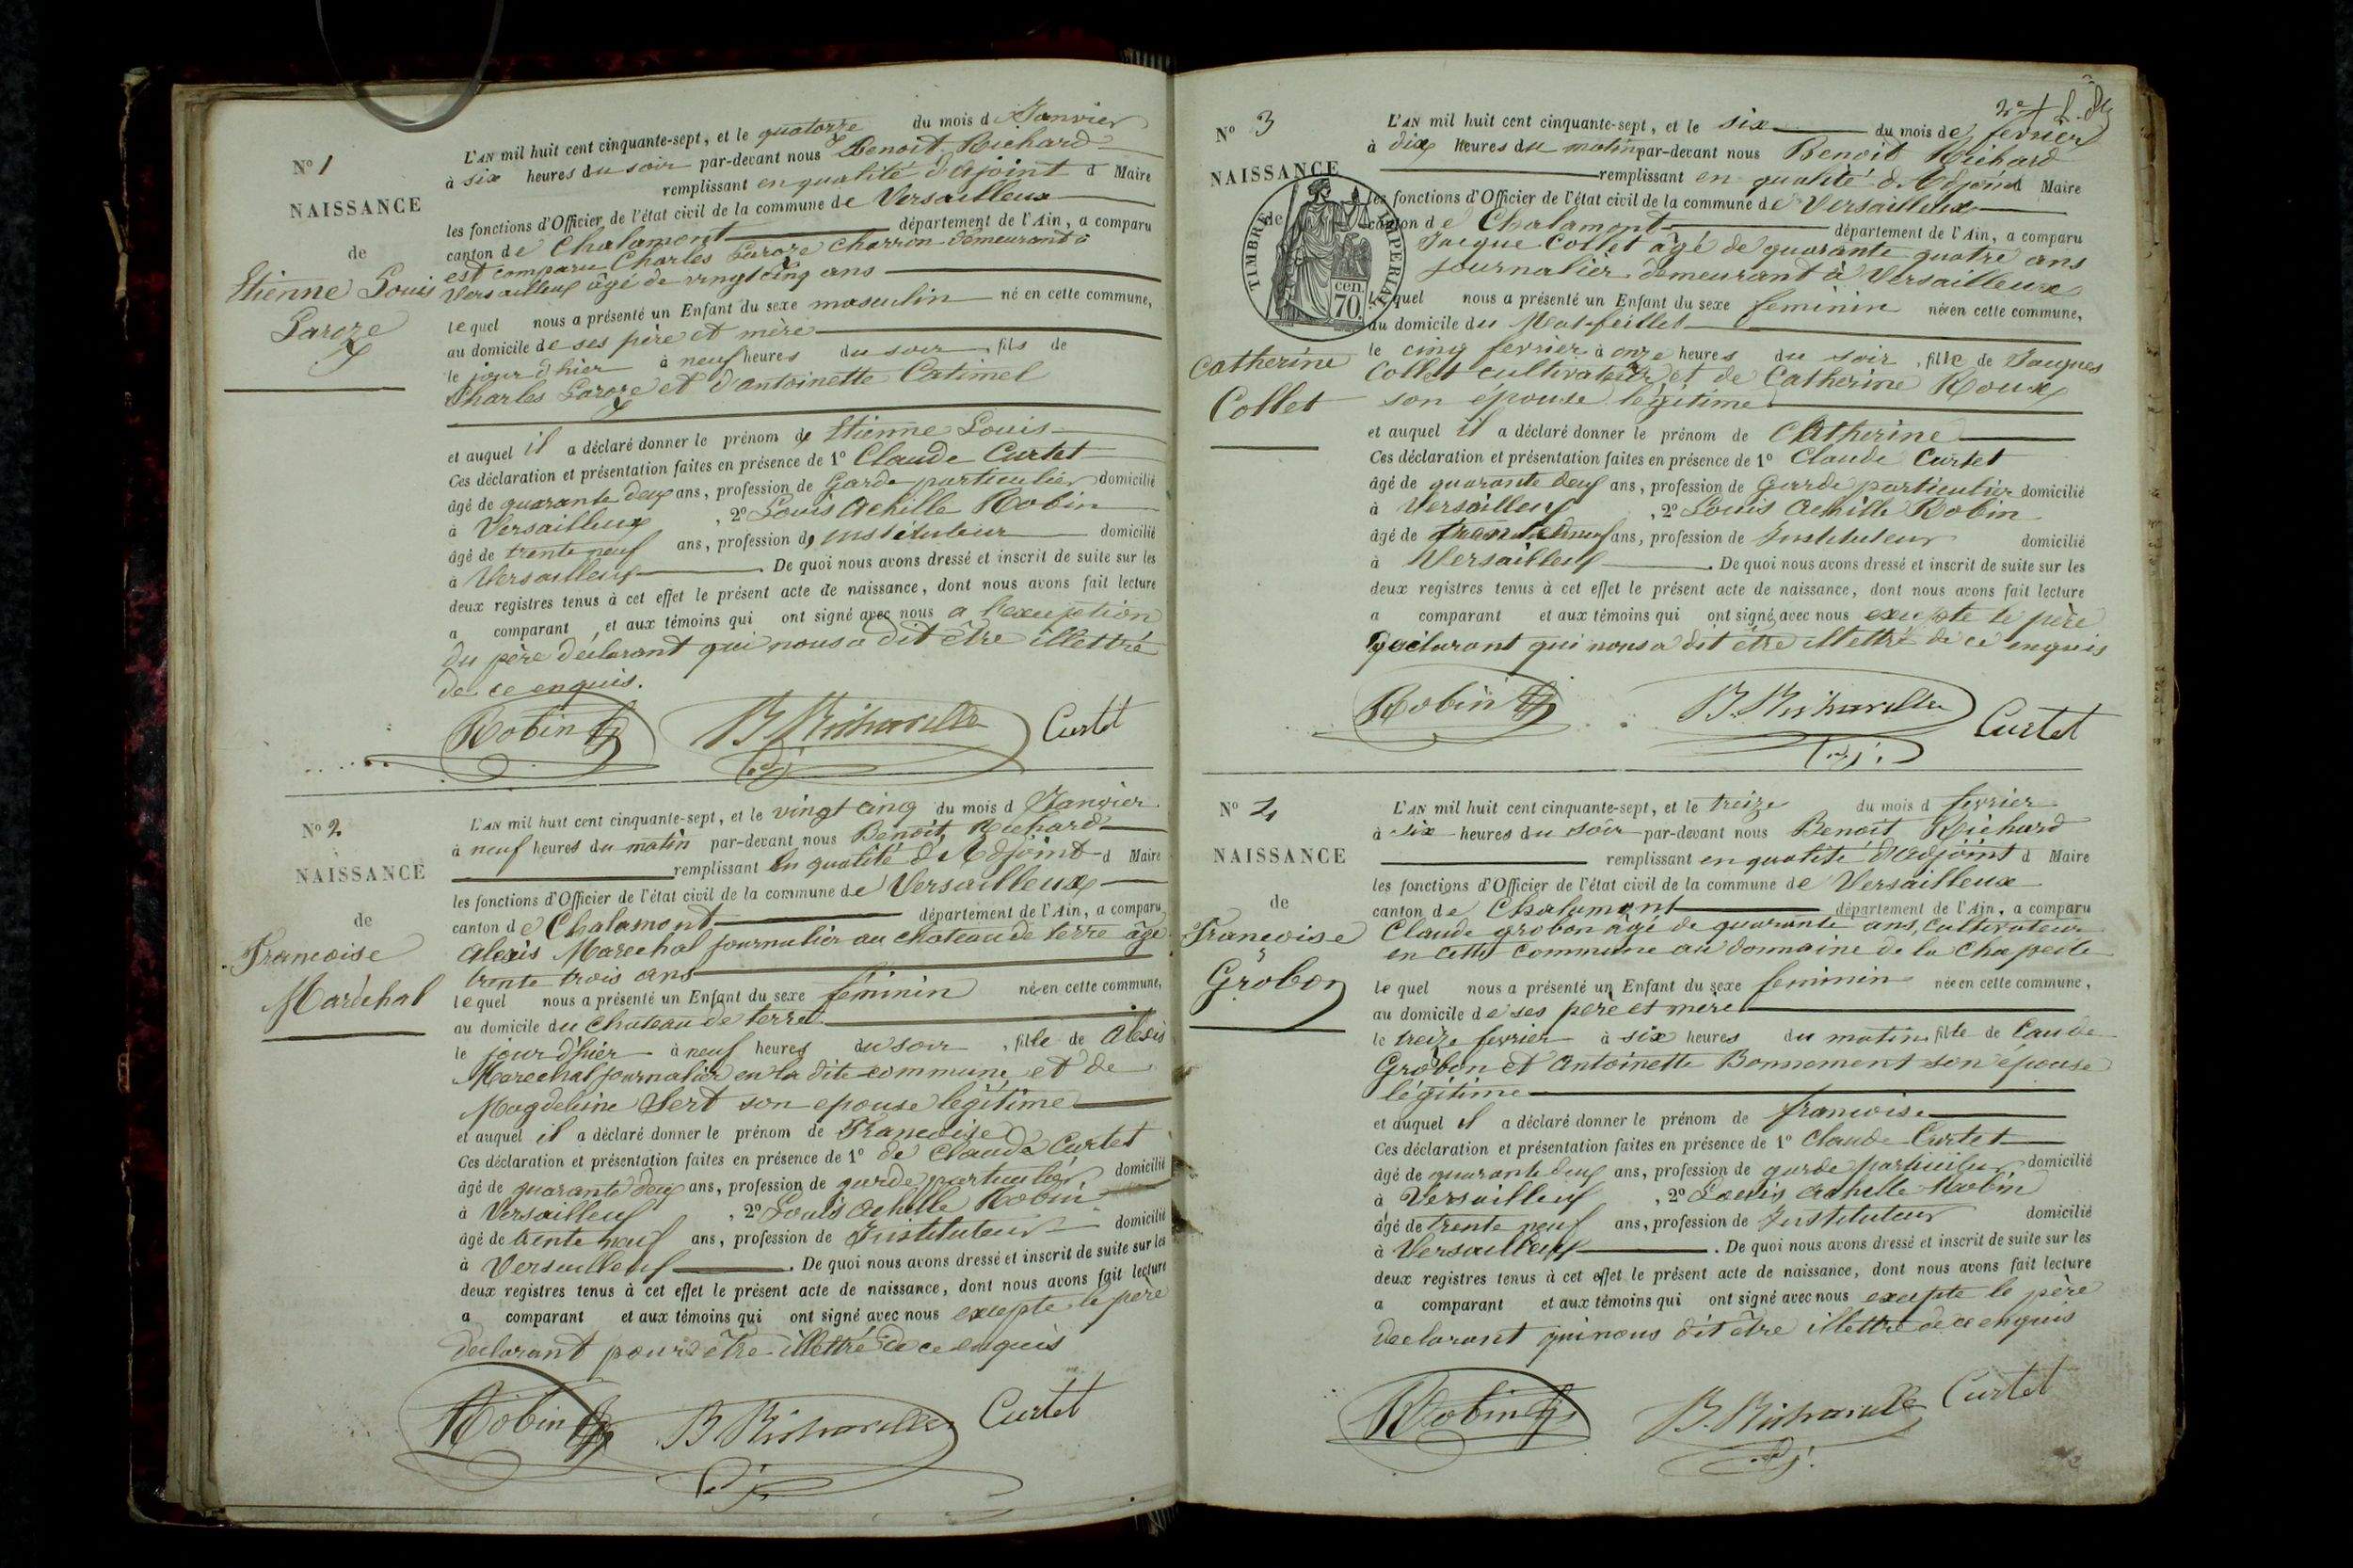 N° 1
NAISSANCE
de
Etienne Louis
L'AN mil huit cent cinquante-sept, et le quatorze du mois d Janvier
à six heures du soir par-devant nous Benoit Richard
remplissant en qualité d'Ajoint d Maire
les fonctions d'Officier de l'état civil de la commune de Versailleux
canton de Chalamont département de l'Ain, a comparu
est comparu Charles Laroze charron demeurant à
Versailleux âgé de vingt cinq ans
lequel nous a présenté un Enfant du sexe masculin né en cette commune,
au domicile de ses père et mère
le jour d'hier à neuf heures du soir fils de
Charles Laroze et d'antoinette Catimel
et auquel il a déclaré donner le prénom de Etienne Louis
Ces déclaration et présentation faites en présence de 1° Claude Curtet
âgé de quarante deux ans, profession de Garde particulier domicilié
à Versailleux, 2° Louis Achille Robin
âgé de trente neuf ans, profession de instituteur domicilié
à Versailleux. De quoi nous avons dressé et inscrit de suite sur les
deux registres tenus à cet effet le présent acte de naissance, dont nous avons fait lecture
a comparant, et aux témoins qui ont signé avec nous a l'exeception
du père declarant qui nous a dit être illettré
de ce enquis.
Robin B Richard Curtet
adj
N° 2
NAISSANCE
de
Francoise
Maréchal
L'AN mil huit cent cinquante-sept, et le vingt cinq du mois d Janvier
à neuf heures du matin par-devant nous Benoit Richard
remplissant en qualité d'Adjoint d Maire
les fonctions d'Officier de l'état civil de la commune de Versailleux
canton de Chalamont département de l'Ain, a comparu
Alexis Marechal journalier au chateau de terre âgé
trente trois ans
lequel nous a présenté un Enfant du sexe féminin née en cette commune,
au domicile du chateau de terre
le jour d'hier à neuf heures du soir, fille de Alexis
Marechal journalier en la dite commune et de
Magdeleine Sert son epouse légitime
et auquel il a déclaré donner le prénom de Francoise
Ces déclaration et présentation faites en présence de 1° de Claude Curtet
âgé de quarante deux ans, profession de garde particulier domicilié
à Versailleux, 2° Louis Achille Robin
âgé de trente neuf ans, profession de Instituteur domicilié
à Versailleux. De quoi nous avons dressé et inscrit de suite sur les
deux registres tenus à cet effet le présent acte de naissance, dont nous avons fait lecture
a comparant et aux témoins qui ont signé avec nous excepte le père
declarant pour être illettré de ce enquis
Robin B Richard Curtet
adj
N° 3
NAISSANCE
de
TIMBRE IMPERIAL
70 cen.
Catherine
Collet
L'AN mil huit cent cinquante-sept, et le six du mois de fevrier
à dix heures du matin par-devant nous Benoit Richard
remplissant en qualité d'Adjoint d Maire
les fonctions d'Officier de l'état civil de la commune de Versailleux
canton de Chalamont département de l'Ain, a comparu
Jacque Collet âgé de quarante quatre ans
journalier demeurant à Versailleux
lequel nous a présenté un Enfant du sexe feminin née en cette commune,
au domicile du Mas-feillet
le cinq fevrier à onze heures du soir, fille de Jaques
Collet cultivateur et de Catherine Roux
son épouse légitime
et auquel il a déclaré donner le prénom de Catherine
Ces déclaration et présentation faites en présence de 1° Claude Curtet
âgé de quarante deux ans, profession de Garde particulier domicilié
à Versailleux, 2° Louis Achille Robin
âgé de trente neuf ans, profession de Instituteur domicilié
à Versailleux. De quoi nous avons dressé et inscrit de suite sur les
deux registres tenus à cet effet le présent acte de naissance, dont nous avons fait lecture
a comparant et aux témoins qui ont signé avec nous excepte le père
declarant qui nous a dit etre illettré de ce enquis
Robin B. Richard Curtet
adj.
N° 4
NAISSANCE
de
Francoise
Grobon
L'AN mil huit cent cinquante-sept, et le treize du mois d fevrier
à six heures du soir par-devant nous Benoit Richard
remplissant en qualité d'adjoint d Maire
les fonctions d'Officier de l'état civil de la commune de Versailleux
canton de Chalamont département de l'Ain, a comparu
Claude grobon âgé de quarante ans, cultivateur
en cette commune au domaine de la Chapelle
lequel nous a présenté un Enfant du sexe feminin née en cette commune,
au domicile de ses père et mère
le treize fevrier à six heures du matin fille de Caude
Grobon et Antoinette Bonnement son épouse
légitime
et auquel il a déclaré donner le prénom de francoise
Ces déclaration et présentation faites en présence de 1° Claude Curtet
âgé de quarante deux ans, profession de garde particulier domicilié
à Versailleux, 2° Louis Achille Robin
âgé de trente neuf ans, profession de Instituteur domicilié
à Versailleux. De quoi nous avons dressé et inscrit de suite sur les
deux registres tenus à cet effet le présent acte de naissance, dont nous avons fait lecture
a comparant et aux témoins qui ont signé avec nous excepte le père
declarant qui nous dit être illettré de ce enquis
Robin B. Richard Curtet
adj.